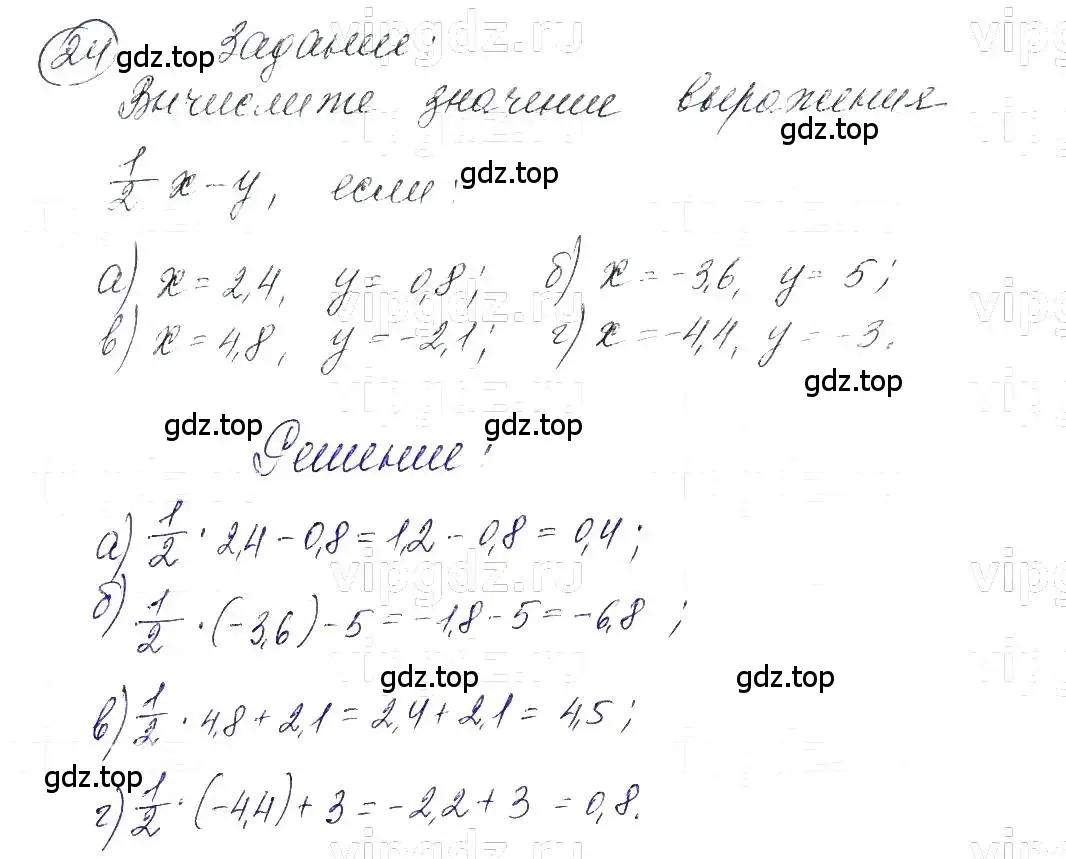 24 gdz.top Задание:
Вычислите значение выражения
gdz.top
1/2 x - y, если: gdz.top
а) x = 2,4, y = 0,8; б) x = -3,6, y = 5;
в) x = 4,8, y = -2,1; г) x = -4,4, y = -3.
gdz.top
gdz.top gdz.top
Решение:
а) 1/2 · 2,4 - 0,8 = 1,2 - 0,8 = 0,4;
б) 1/2 · (-3,6) - 5 = -1,8 - 5 = -6,8;
gdz.top gdz.top
в) 1/2 · 4,8 + 2,1 = 2,4 + 2,1 = 4,5;
gdz.top
г) 1/2 · (-4,4) + 3 = -2,2 + 3 = 0,8.
vipgdz.ru